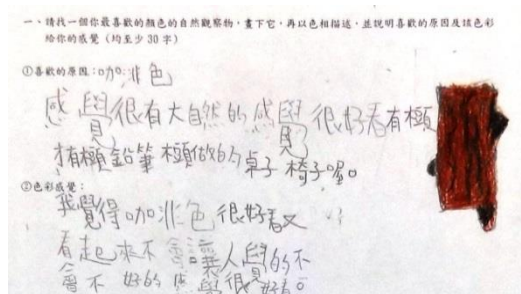 一、請找一個你最喜歡的顏色的自然觀察物,畫下它,再以色相描述,並說明喜歡的原因及該色彩
給你的感覺(均至少30字)
①喜歡的原因:咖啡色
感覺很有大自然的感覺很好看有樹
才有樹鉛筆樹做的桌子椅子喔。
②色彩感覺:
我覺得咖啡色很好看又
看起來不會讓人覺的不
會不好的感覺很好看。